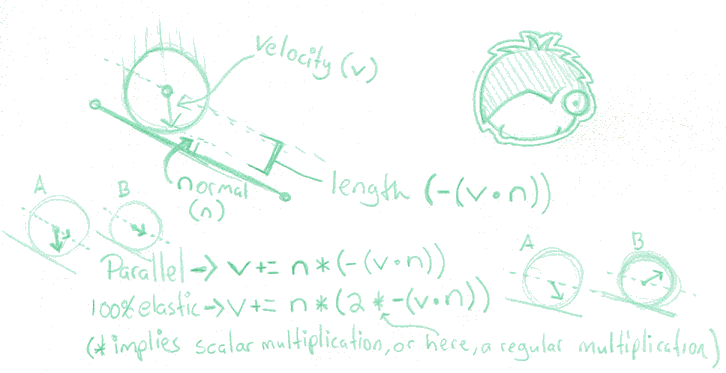 velocity (v)
normal
(n)
length (-(v•n))
A
B
Parallel → v += n*(-(v•n))
100% elastic → v += n*(2*-(v•n))
A
B
(* implies scalar multiplication, or here, a regular multiplication)